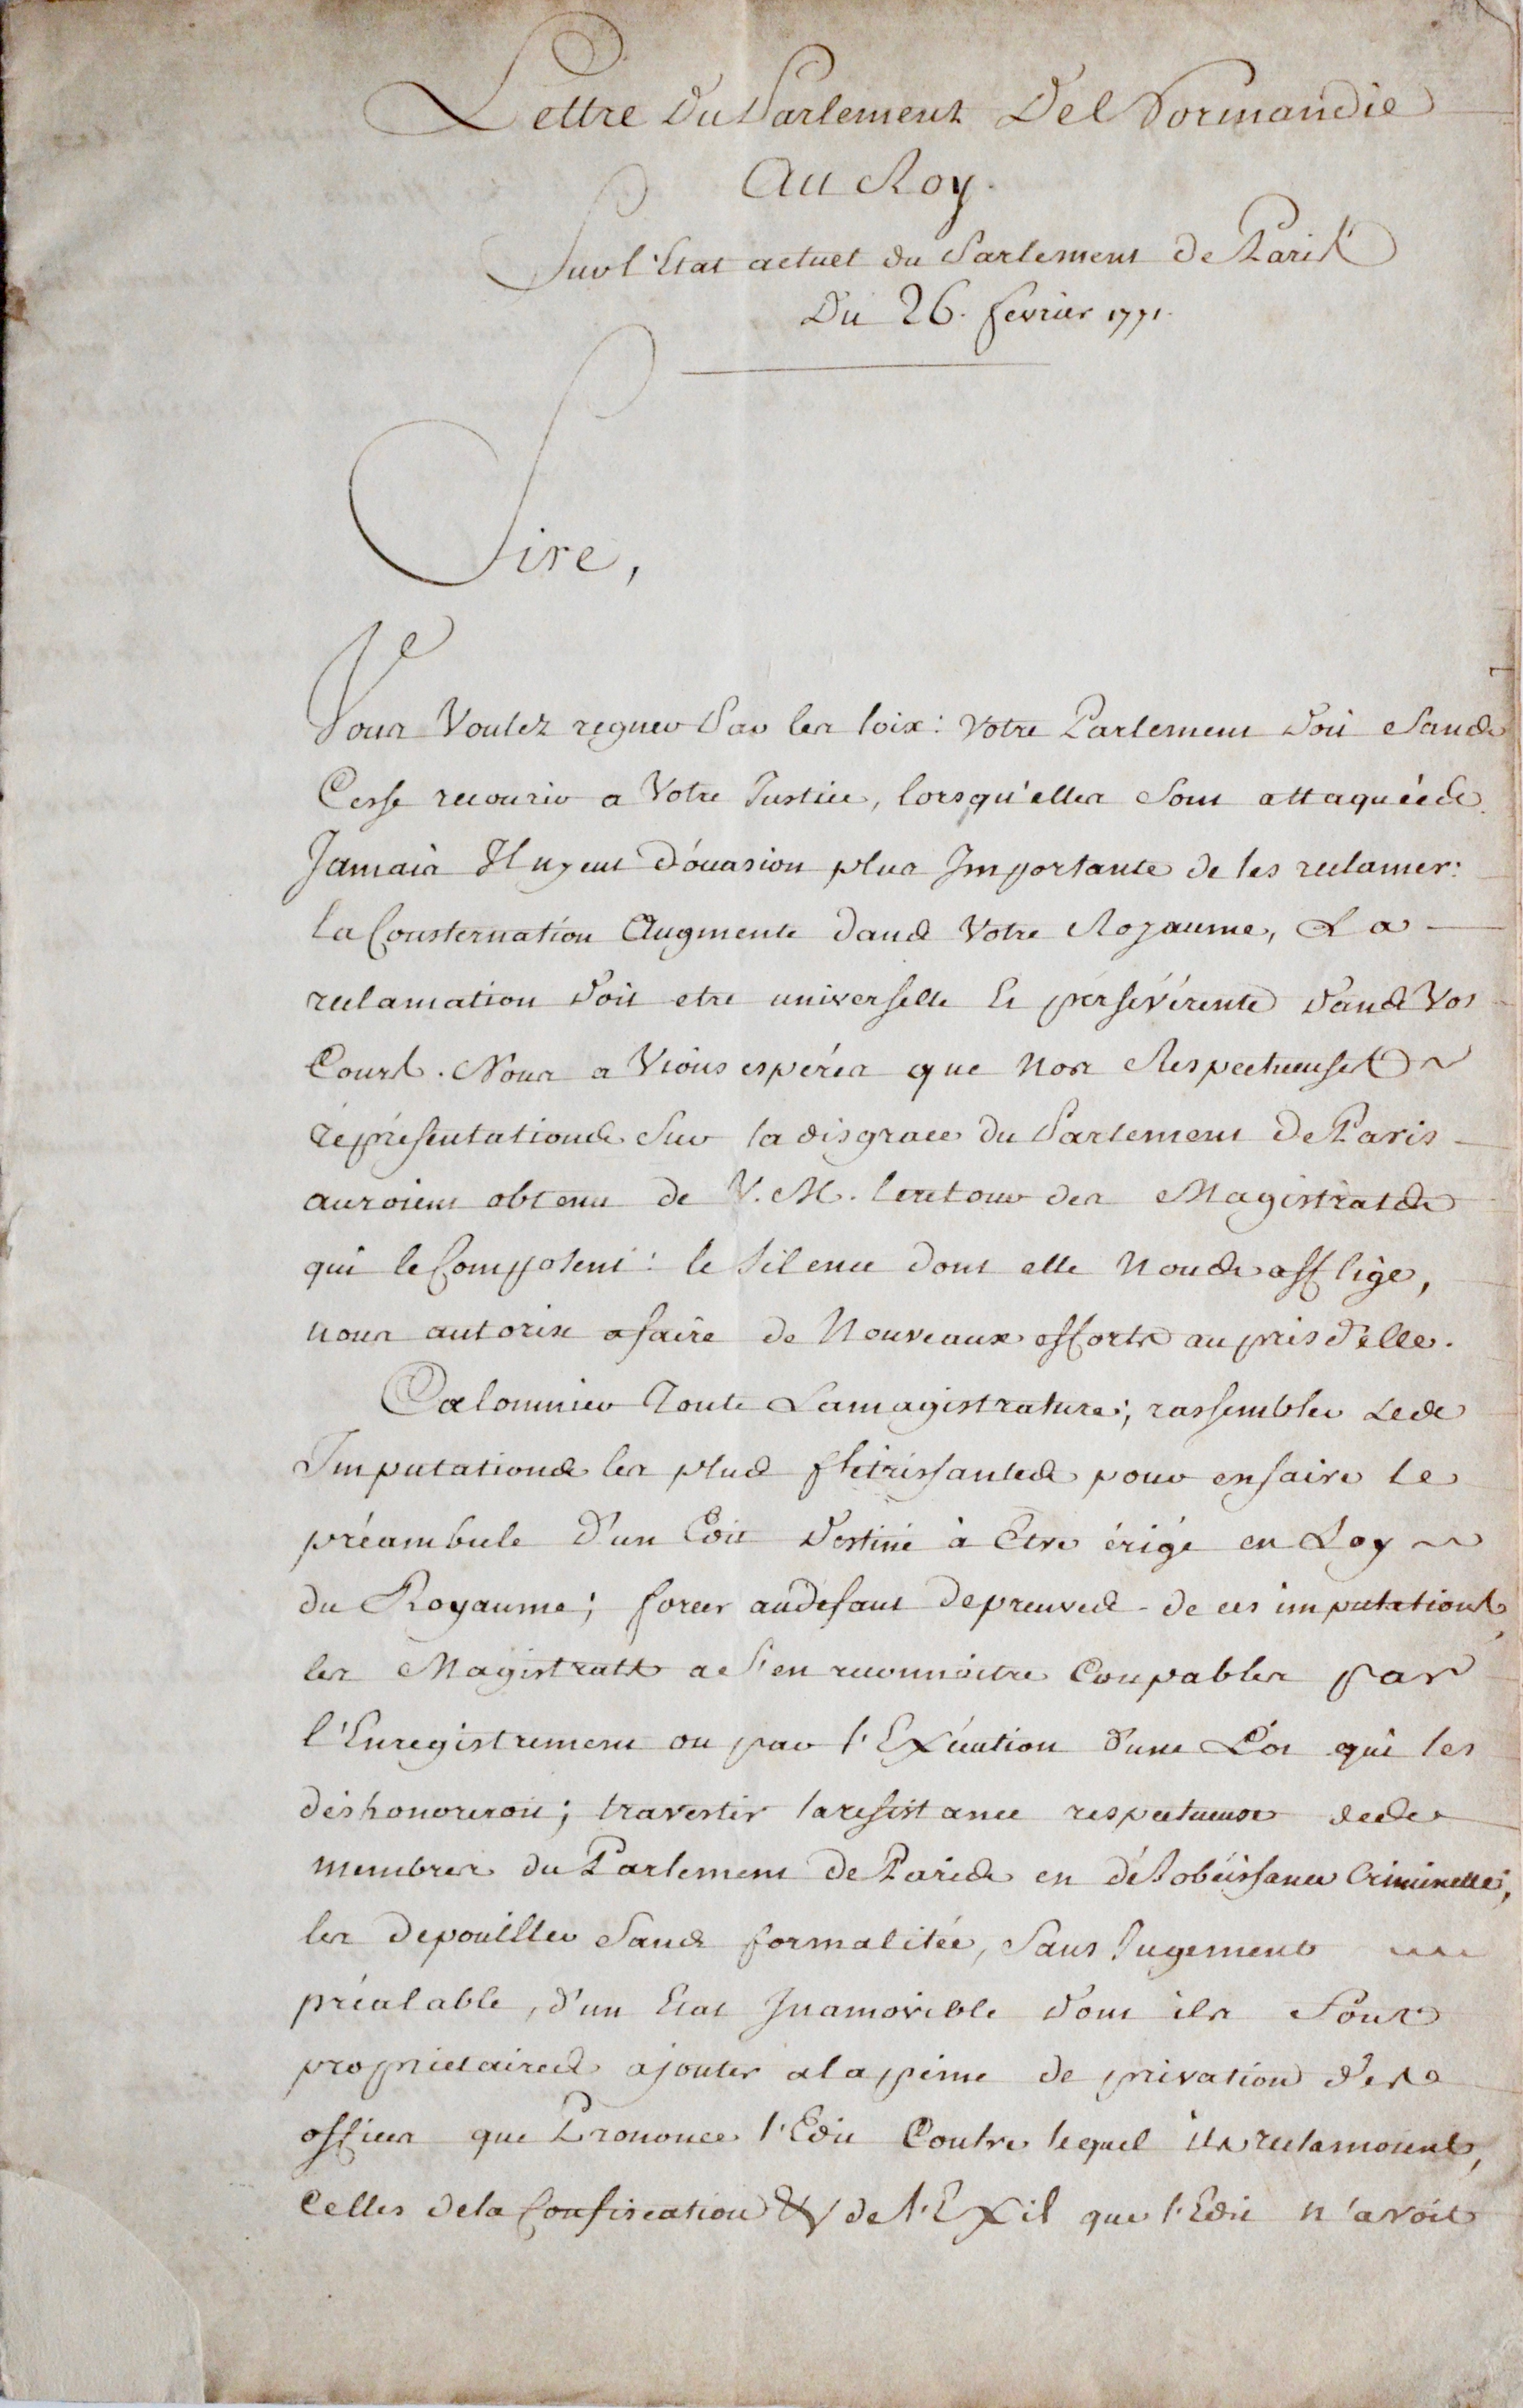 Lettre du Parlement De Normandie
Au Roy.
Sur l'Etat actuel du Parlement de Paris
Du 26. fevrier 1771.
Sire,
Vous Voulez regner Par les loix: Votre Parlement doit Sans
Cesse recourir a Votre Justice, lorsqu'elles Sont attaquées.
Jamais Il n'y eut d'occasion plus Importante de les reclamer:
la Consternation Augmente dans Votre Royaume, La
reclamation doit etre universelle Et persévérente dans Vos
Cours. Nous a Vions espérés que Nos Respectueuses
réprésentations Sur la disgrace du Parlement de Paris
auroient obtenu de V. M. le retour des Magistrats
qui le Composent: le Silence dont elle Nous afflige,
nous autorise a faire de Nouveaux efforts au près d'elle.
Calomnier Toute La magistrature; rassembler Les
Imputations les plus flétrissantes pour en faire le
préambule d'un Edit Destiné à Etre érigé en Loy
du Royaume; forcer au defaut de preuves de ces imputations,
les Magistrats a S'en reconnoitre Coupables par
l'Enregistrement ou par l'Exécution d'une Loi qui les
déshonoreroit; travestir la resistance respectueuse des
membres du Parlement de Paris en désobéissance Criminelle;
les depouiller Sans formalitée, Sans Jugement
préalable, d'un Etat Inamovible dont ils Sont
proprietaires ajouter a la peine de privation des
offices que Prononce l'Edit Contre lequel ils reclamoient,
Celles de la Confiscation & de l'Exil que l'Edit n'avoit